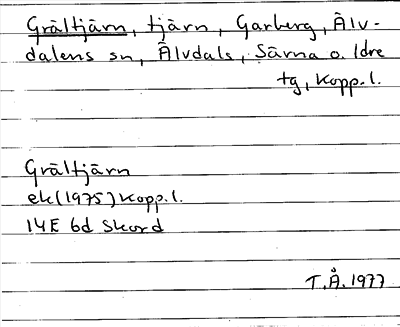 Gråltjärn, tjärn, Garberg, Älv-
dalens sn, Älvdals, Särna o. Idre
tg, Kopp. l.
Gråltjärn
ek (1975) Kopp. l.
14E 6d Skord
T.Å. 1977